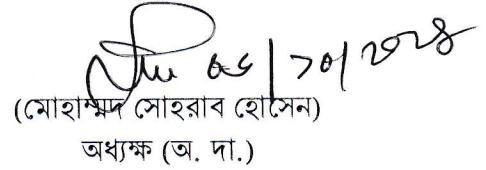 ০৬/১০/২০২৪
(মোহাম্মদ সোহরাব হোসেন)
অধ্যক্ষ (অ. দা.)